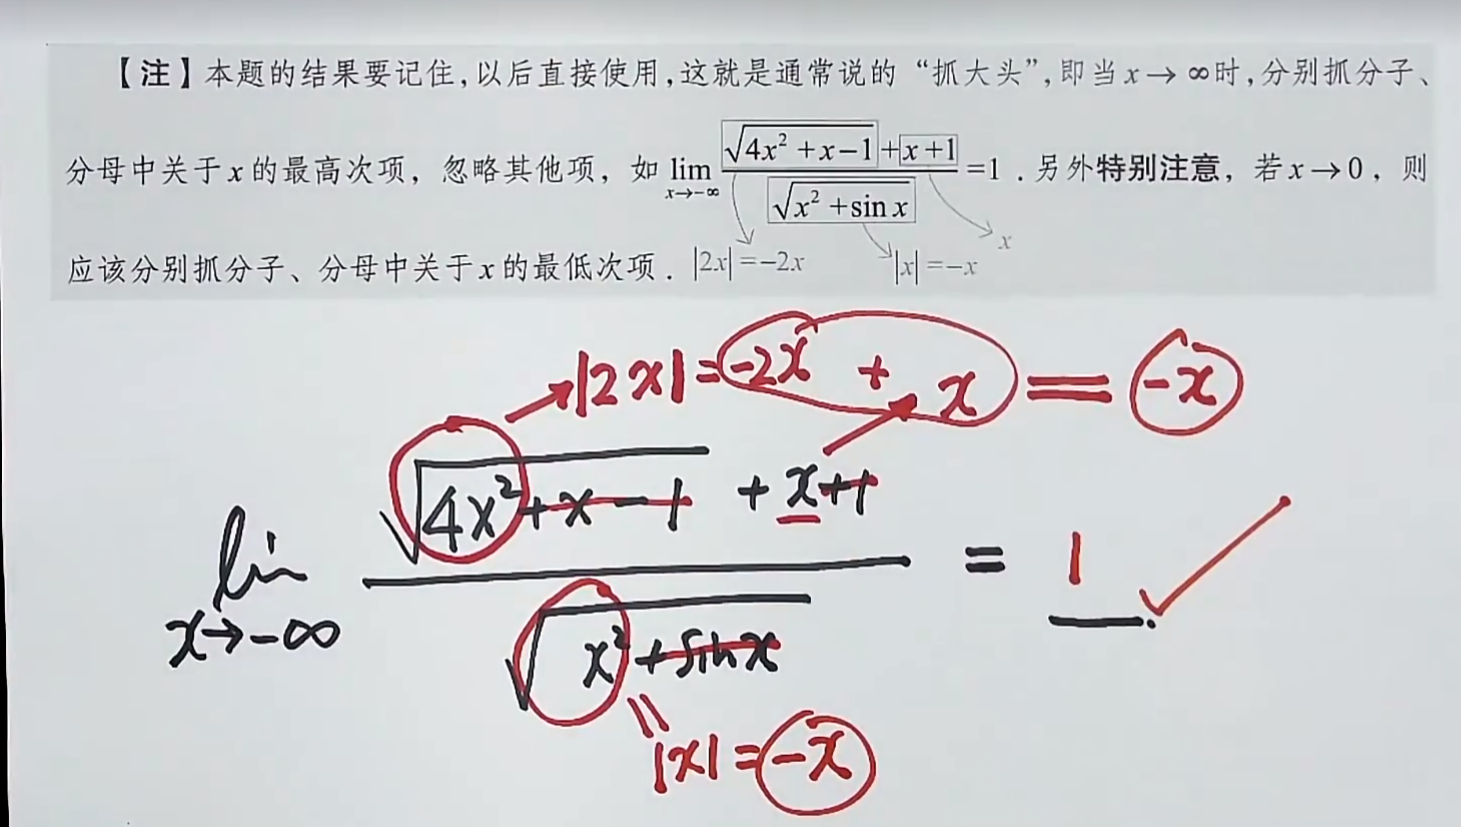 【注】本题的结果要记住,以后直接使用,这就是通常说的“抓大头”,即当 x → ∞ 时,分别抓分子、
分母中关于 x 的最高次项，忽略其他项，如 lim x→-∞ (√(4x² + x - 1) + x + 1) / √(x² + sin x) = 1 . 另外特别注意，若 x → 0，则
应该分别抓分子、分母中关于 x 的最低次项 . |2x| = -2x |x| = -x x
|2x| = -2x + x = -x
lim x→-∞ (√(4x²+x-1) + x+1) / √(x²+sinx) = 1
|x| = -x